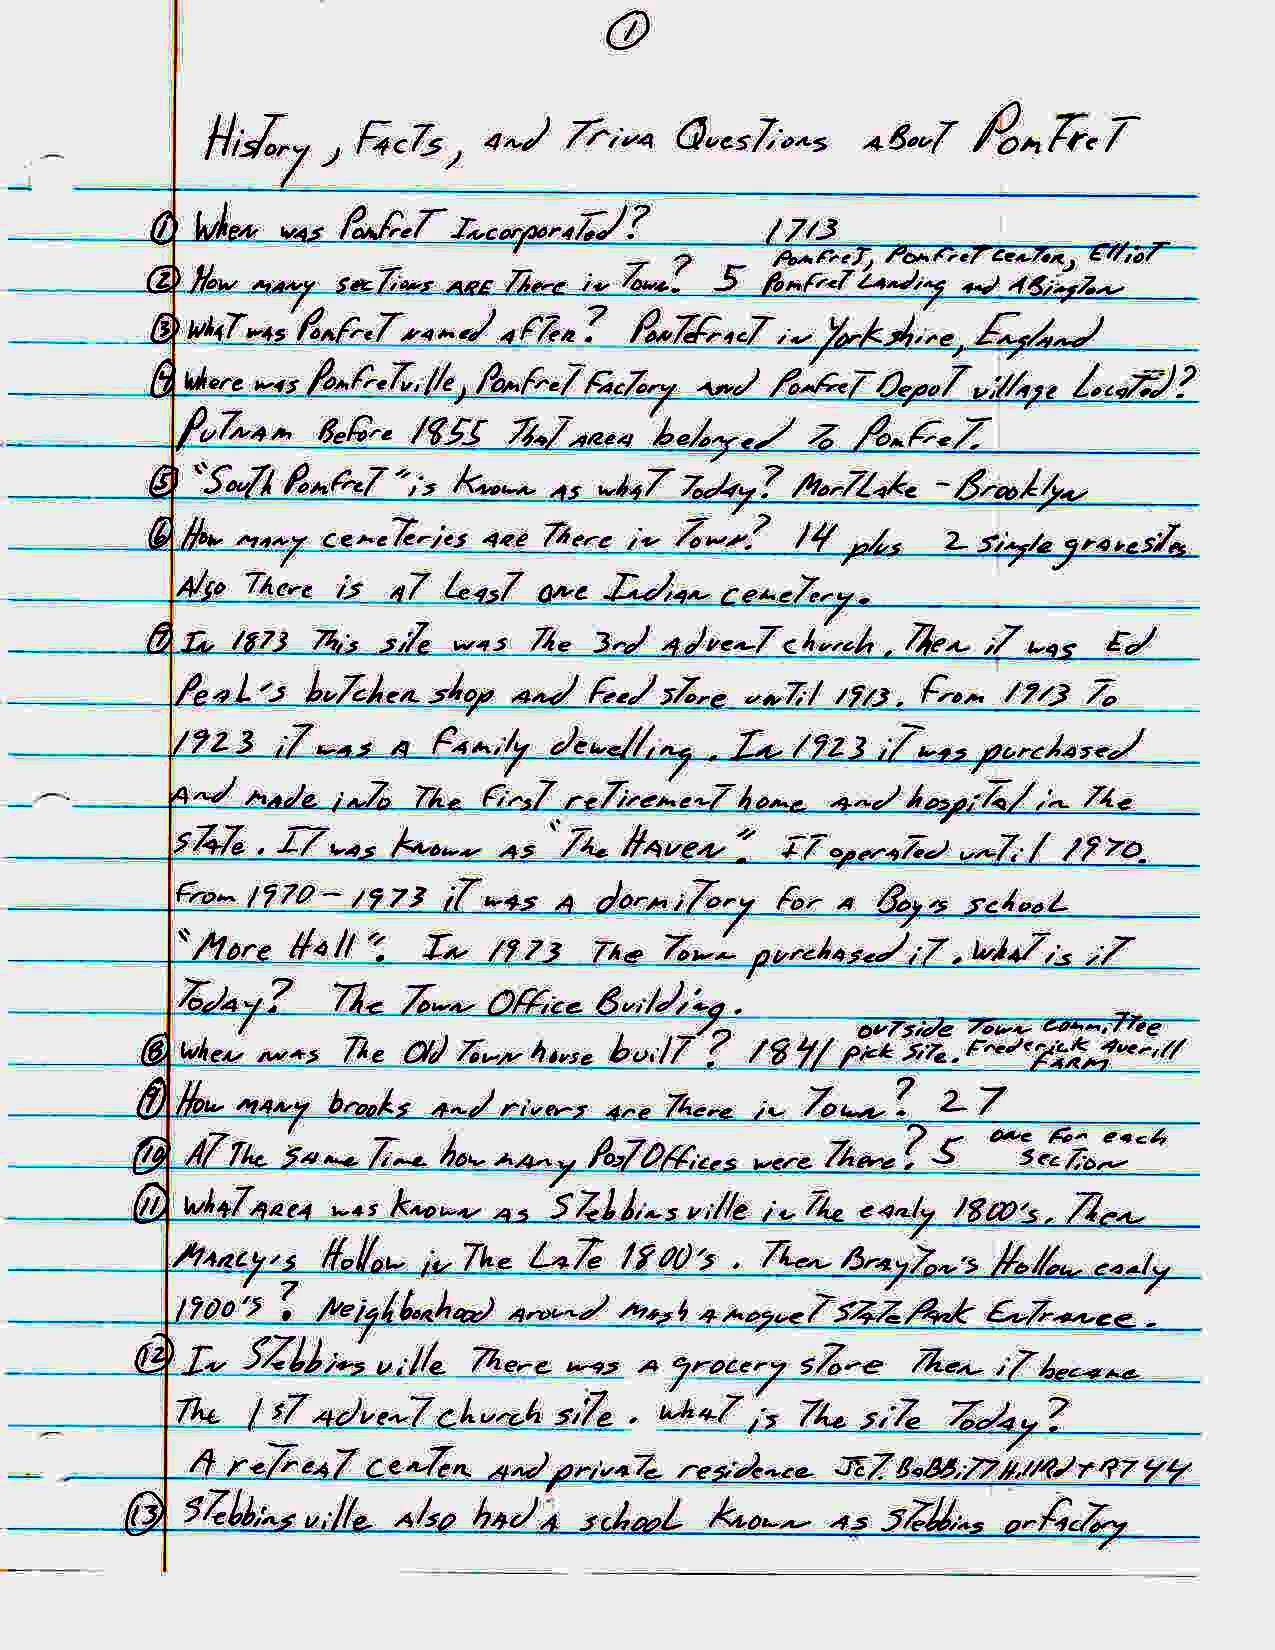 1
History, Facts, and Triva Questions about Pomfret
① When was Pomfret Incorporated? 1713
② How many sections are there in Town? 5 Pomfret, Pomfret center, Elliot
Pomfret Landing and Abington
③ What was Pomfret named after? Pontefract in Yorkshire, England
④ Where was Pomfretville, Pomfret Factory and Pomfret Depot village Located?
Putnam Before 1855 That area belonged to Pomfret.
⑤ "South Pomfret" is Known as what Today? Mortlake - Brooklyn
⑥ How many cemeteries are there in Town? 14 plus 2 single gravesites
Also there is at least one Indian cemetery.
⑦ In 1873 this site was the 3rd advent church. Then it was Ed
Peal's butcher shop and feed store until 1913. From 1913 to
1923 it was a family dewelling. In 1923 it was purchased
and made into the first retirement home and hospital in the
state. It was known as "The Haven". It operated until 1970.
From 1970 - 1973 it was a dormitory for a Boys school
"More Hall". In 1973 the Town purchased it. What is it
Today? The Town Office Building.
⑧ When was the Old Town house built? 1841 outside Town committee
pick site. Frederick Averill
Farm
⑨ How many brooks and rivers are there in Town? 27
⑩ At the same time how many Post Offices were there? 5 one for each
section
⑪ What area was known as Stebbinsville in the early 1800's. Then
Marcy's Hollow in the Late 1800's. Then Brayton's Hollow early
1900's? Neighborhood around Mashamoquet State Park Entrance.
⑫ In Stebbinsville there was a grocery store then it became
the 1st advent church site. What is the site Today?
A retreat center and private residence Jct. Babbitt Hill Rd + RT 44
⑬ Stebbinsville also had a school Known as Stebbins or factory